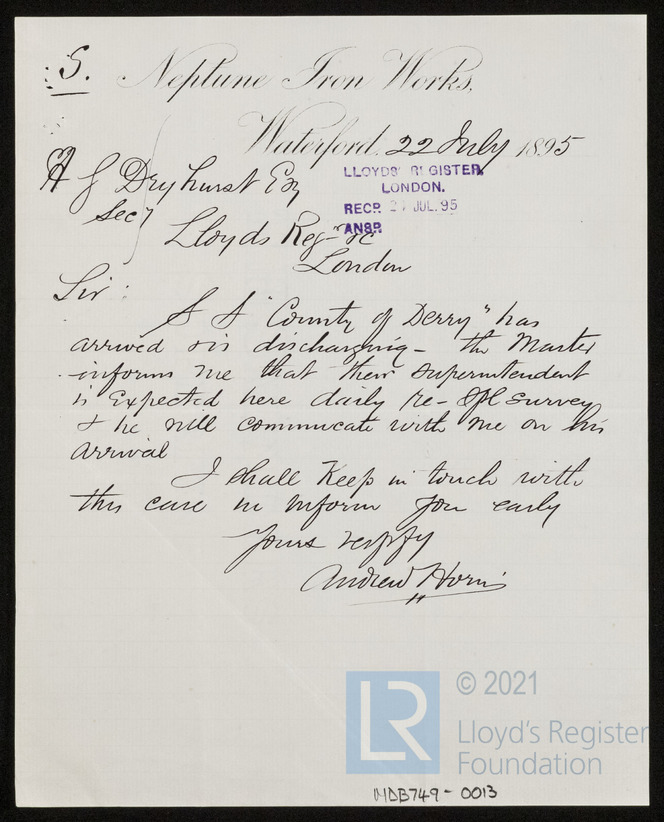 S. Neptune Iron Works,
Waterford. 22 July 1895
LLOYDS' REGISTER,
LONDON.
RECD. 2 JUL. 95
ANSD.
A J Dryhurst Esq
Secy
Lloyds Reg
London
Sir:
S S "County of Derry" has
arrived & is discharging - the Master
informs me that their superintendent
is Expected here daily re- Spl survey
& he will commucate with me on his
arrival
I shall Keep in touch with
this case & inform you early
Yours respfy
Andrew Horn
LR
© 2021
Lloyd's Register
Foundation
HDB749-0013